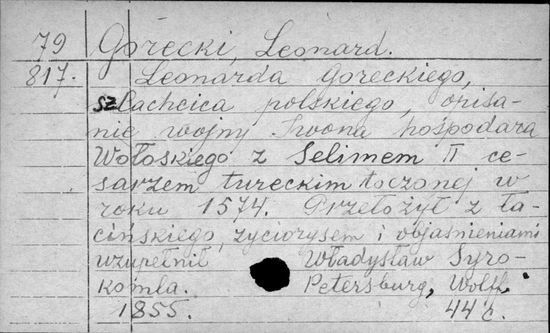 79 Gorecki, Leonard.
817. Leonarda Goreckiego,
szlachcica polskiego, opisa-
nie wojny Iwona hospodara
Wołoskiego z Selimem II ce-
sarzem tureckim toczonej w
roku 1574. Przełożył z ła-
cińskiego, życiorysem i objaśnieniami
uzupełnił Władysław Syro-
komla. Petersburg, Wolff.
1855. 44 c.